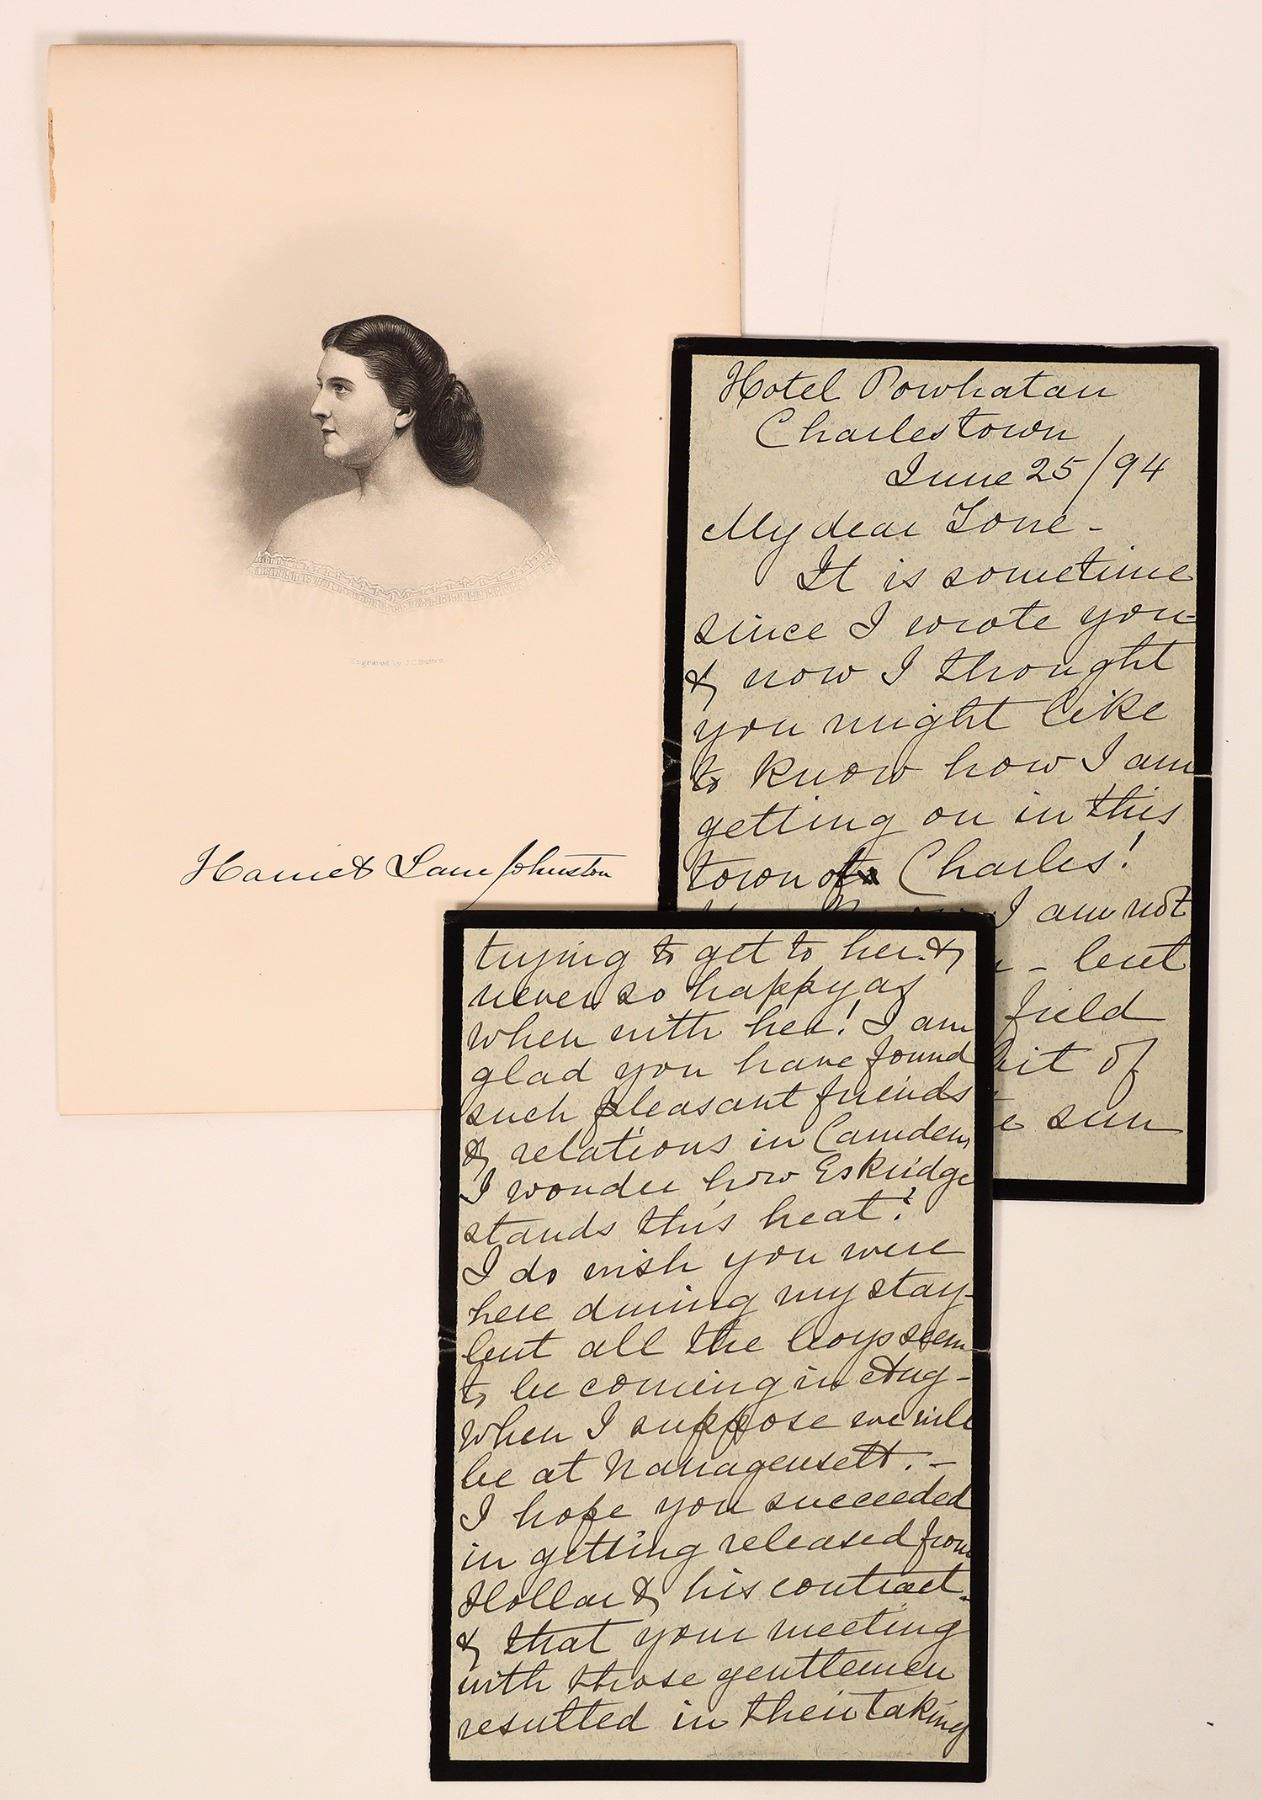 Engraved by J.C. Buttre
Harriet Lane Johnston
Hotel Powhatan
Charlestown
June 25/94
My dear Lone -
It is sometime
since I wrote you-
& now I thought
you might like
to know how I am
getting on in this
town of Charles!
I am not
- but
field
bit of
sun
trying to get to her &
never so happy as
when with her! I am
glad you have found
such pleasant friends
& relations in Camden,
I wonder how Eskridge
stands this heat?
I do wish you were
here during my stay-
but all the boys seem
to be coming in Aug-
when I suppose we will
be at Narragansett. -
I hope you succeeded
in getting released from
Hollar & his contract.
& that your meeting
with those gentlemen
resulted in their taking